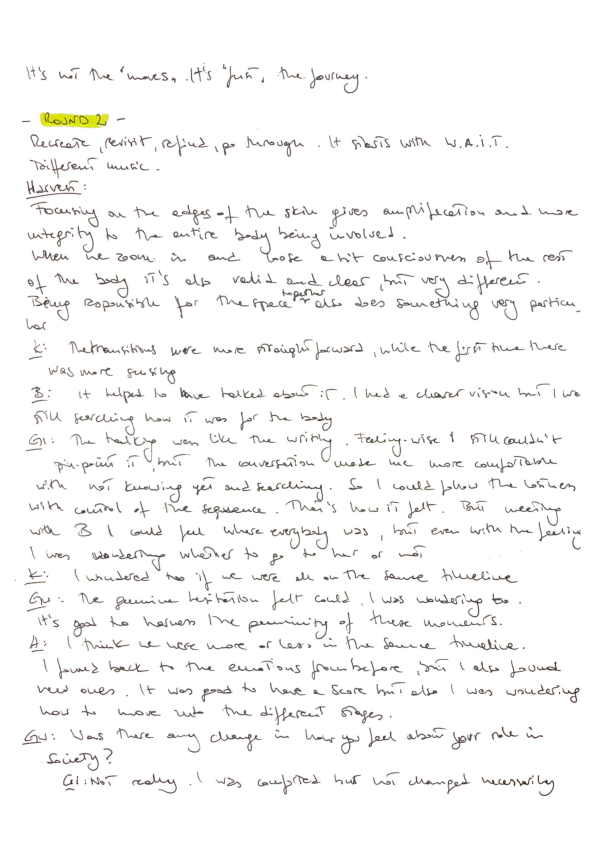 It's not the "moves", it's "just", the journey.
- ROUND 2 -
Recreate, revisit, refind, go through. It starts with W.A.I.T.
Different music.
Harvest:
Focusing on the edges of the skin gives amplification and more
integrity to the entire body being involved.
When we zoom in and loose a bit consciousness of the rest
of the body it's also valid and clear, but very different.
Being responsible for the space together also does something very particu
lar
K: The transitions were more straight forward, while the first time there
was more sensing
B: It helped to have talked about it. I had a clearer vision but I was
still searching how it was for the body
Gi: The talking was like the writing. Feeling-wise I still couldn't
pin-point it, but the conversation made me more comfortable
with not knowing yet and searching. So I could follow the
with control of the sequence. That's how it felt. But meeting
with B I could feel where everybody was, but even with the feeling
I was wondering whether to go to her or not
K: I wondered too if we were all on the same timeline
Gu: The genuine hesitation felt could, I was wondering too.
It's good to harness the genuinity of these moments.
A: I think we were more or less in the same timeline.
I found back to the emotions from before, but I also found
new ones. It was good to have a score but also I was wondering
how to move into the different stages.
Gu: Was there any change in how you feel about your role in
society?
Gi: Not really. I was comforted but not changed necessarily